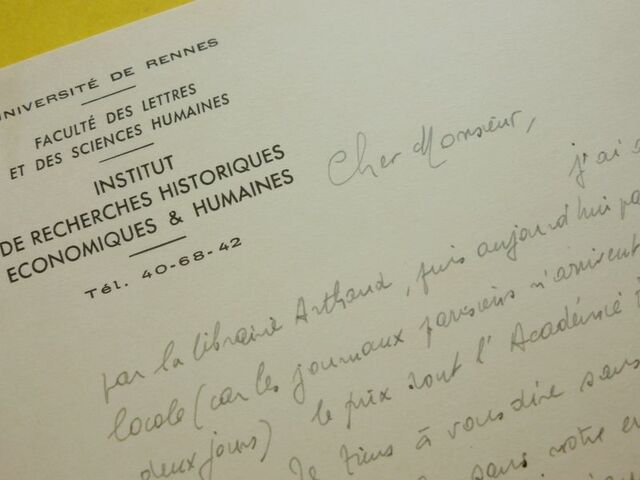 UNIVERSITÉ DE RENNES
FACULTÉ DES LETTRES
ET DES SCIENCES HUMAINES
INSTITUT
DE RECHERCHES HISTORIQUES
ECONOMIQUES & HUMAINES
Tél. 40-68-42
Cher Monsieur,
j'ai
par la librairie Arthaud, puis aujourd'hui
locale (car les journaux parisiens n'arrivent
deux jours) le prix dont l'Académie
Je tiens à vous dire sans
sans votre